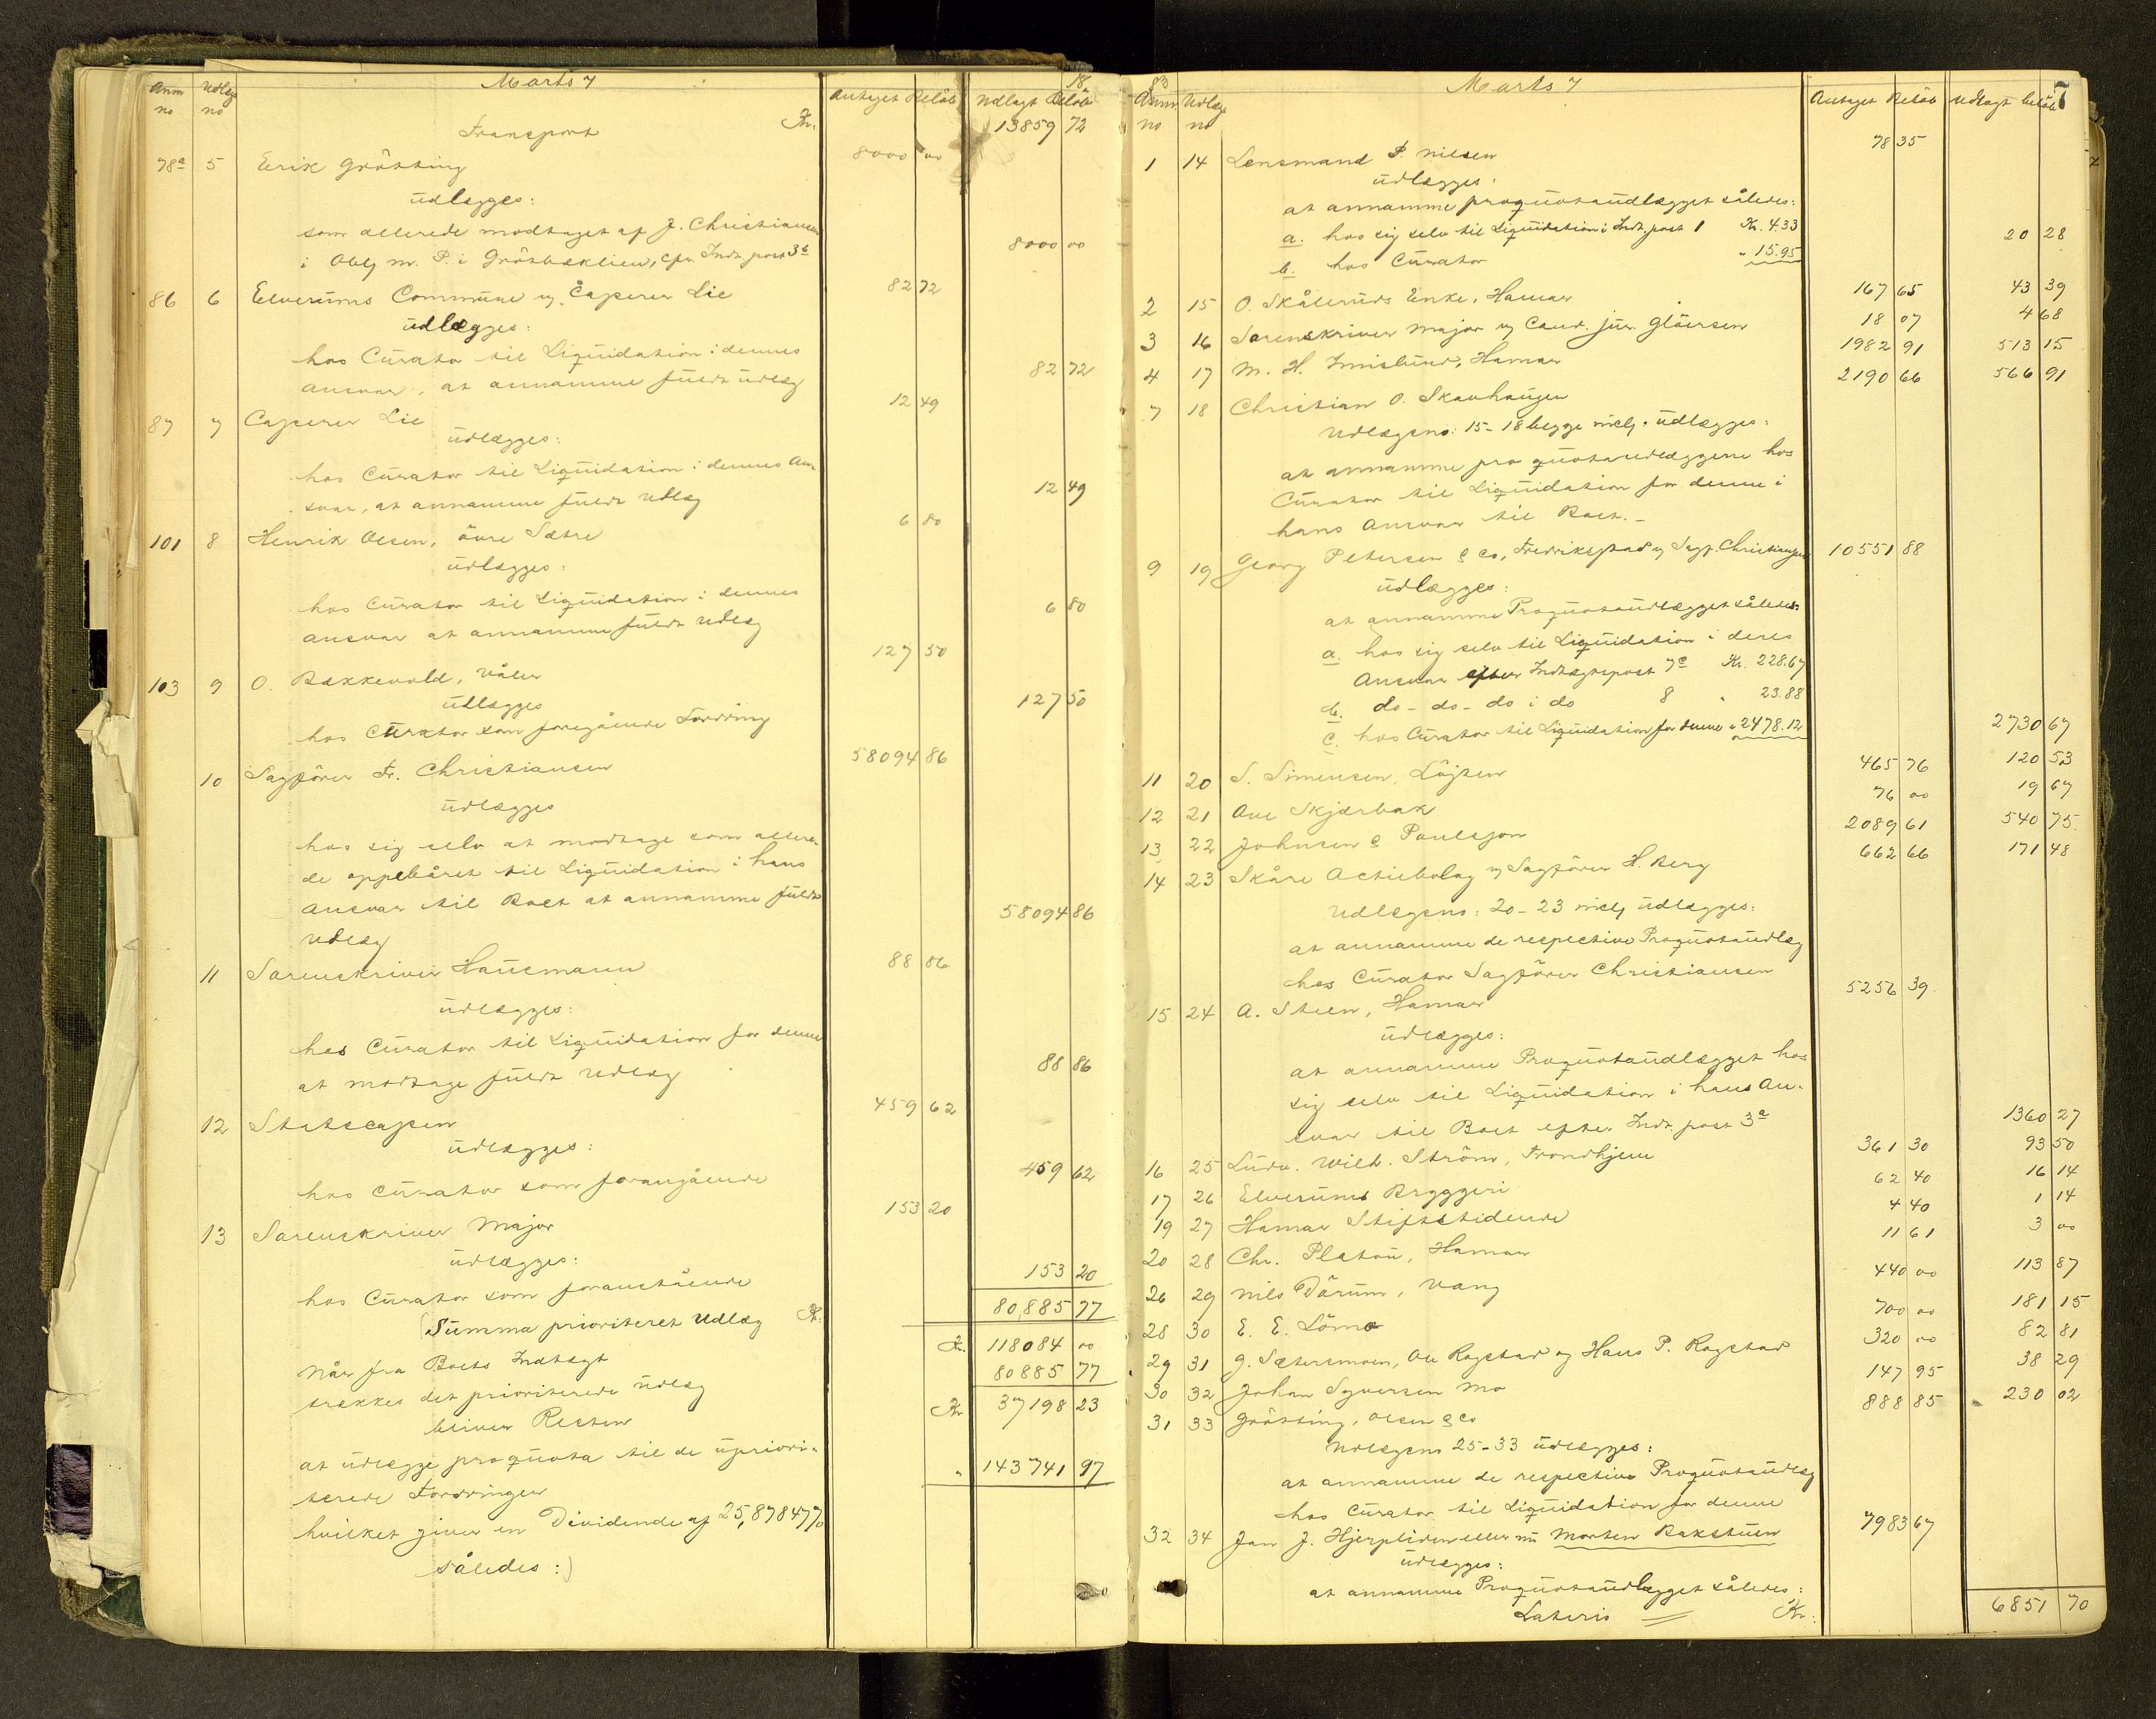 Marts 7 18
Anm no Udlæg no Antaget Beløb Udlagt Beløb
Transport Kr. 13859 72
78a 5 Eerik Grötting 8000 00
udlægges:
som allerede modtaget af J. Christiansen
i Obl. m. P. i Grötbæklien, cfr. Indt. post 3b 8000 00
86 6 Elverums Commune v. Casserer Lie 82 72
udlægges:
hos Curator til Liquidation i dennes
Ansvar, at annamme fuldt udlæg 82 72
87 7 Casserer Lie 12 49
udlægges:
hos Curator til Liquidation i dennes An-
svar, at annamme fuldt Udlæg 12 49
101 8 Henrik Olsen, övre Sætre 6 80
udlægges:
hos Curator til Liquidation i dennes
Ansvar at annamme fuldt Udlæg 6 80
103 9 O. Bakkevold, Våler 127 50
udlægges
hos Curator som foregående Fordring 127 50
10 Sagförer Fr. Christiansen 58094 86
udlægges
hos sig selv at modtage som allere-
de oppebåret til Liquidation i hans
Ansvar til Boet at annamme fuldt
Udlæg 58094 86
11 Sorenskriver Hausmann 88 86
udlægges:
hos Curator til Liquidation for denne
at modtage fuldt Udlæg 88 86
12 Statscassen 459 62
udlægges:
hos Curator som forangående 459 62
13 Sorenskriver Major 153 20
udlægges:
hos Curator som foranstående 153 20
Summa prioriteret Udlæg Kr. 80,885 77
Når fra Boets Indtægt Kr. 118084 00
trækkes det prioriterede Udlæg 80885 77
bliver Resten Kr. 37198 23
at udlægge pro quota til de upriori-
terede Fordringer " 143741 97
hvilket giver en Dividende af 25,87847%
således:)
83 Marts 7 7
Anm no Udlæg no Antaget Beløb Udlagt beløb
1 14 Lensmand P. Nilsen 78 35
udlægges:
at annamme proquotaudlægget således:
a. hos sig selv til Liquidation i Indt. post 1 Kr. 4.33
b. hos Curator " 15.95 20 28
2 15 O. Skåleruds Enke, Hamar 167 65 43 39
3 16 Sorenskriver Major v. Cand. jur. Glöersen 18 07 4 68
4 17 M. H. Innislund, Hamar 1982 91 513 15
7 18 Christian O. Skavhaugen 2190 66 566 91
Udlægsno: 15-18 begge incl. udlægges:
at annamme pro quotaudlæggene hos
Curator til Liquidation for denne i
hans Ansvar til Boet. -
9 19 Georg Petersen & Co, Fredrikstad v. Sagf. Christiansen 10551 88
udlægges:
at annamme Proquotaudlægget således:
a. hos sig selv til Liquidation i deres
Ansvar efter Indtægtspost 7c Kr. 228.67
b. do - do - do i do 8 " 23.88
c. hos Curator til Liquidation for denne " 2478.12 2730 67
11 20 S. Simensen, Löiten 465 76 120 53
12 21 Ole Skjærbæk 76 00 19 67
13 22 Johnsen & Paulsson 2089 61 540 75
14 23 Skåre Actiebolag v. Sagförer H. Berg 662 66 171 48
Udlægsno: 20-23 incl. udlægges:
at annamme de respective Proquotaudlæg
hos Curator Sagförer Christiansen
15 24 A. Steen, Hamar 5256 39
udlægges:
at annamme Proquotaudlægget hos
sig selv til Liquidation i hans An-
svar til Boet efter Indt. post 3a 1360 27
16 25 Ludv. Wilh. Ström, Trondhjem 361 30 93 50
17 26 Elverums Bryggeri 62 40 16 14
19 27 Hamar Stiftstidende 4 40 1 14
20 28 Chr. Platou, Hamar 11 61 3 00
26 29 Nils Dårum, Vang 440 00 113 87
28 30 E. E. Lömo 700 00 181 15
29 31 G. Sætersmoen, Ole Rogstad og Hans P. Rogstad 320 00 82 81
30 32 Johan Syversen Mo 147 95 38 29
31 33 Grötting, Olsen & Co 888 85 230 02
Udlægsno 25-33 udlægges:
at annamme de respective Proquotaudlæg
hos Curator til Liquidation for denne
32 34 Jon J. Hjerpliden eller nu Morten Bakstuen 7983 67
udlægges:
at annamme Proquotaudlægget således:
Lateris Kr. 6851 70